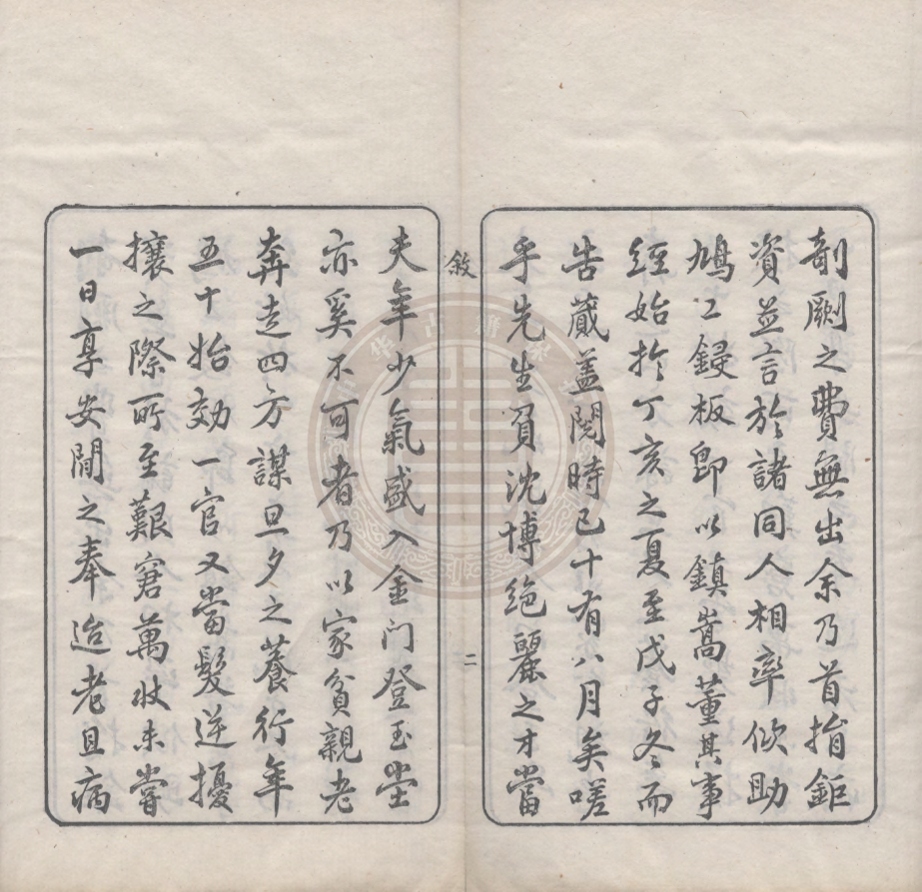 剞劂之費無出余乃首捐鉅
資並言於諸同人相率佽助
鳩工鋟板即以鎮嵩董其事
經始於丁亥之夏至戊子冬而
告蕆蓋閱時已十有八月矣嗟
乎先生負沈博絕麗之才當
敘
二
夫年少氣盛入金门登玉堂
亦奚不可者乃以家貧親老
奔走四方謀旦夕之養行年
五十始効一官又當髮逆擾
攘之際所至艱窘萬狀未嘗
一日享安閒之奉迨老且病